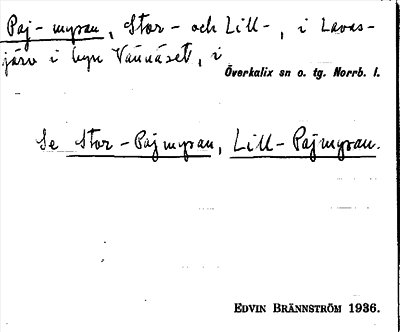 Paj-myran, Stor- och Lill-, i Lavas-
järv i byn Vännäset, i
Överkalix sn o. tg. Norrb. l.
Se Stor-Pajmyran, Lill-Pajmyran.
EDVIN BRÄNNSTRÖM 1936.